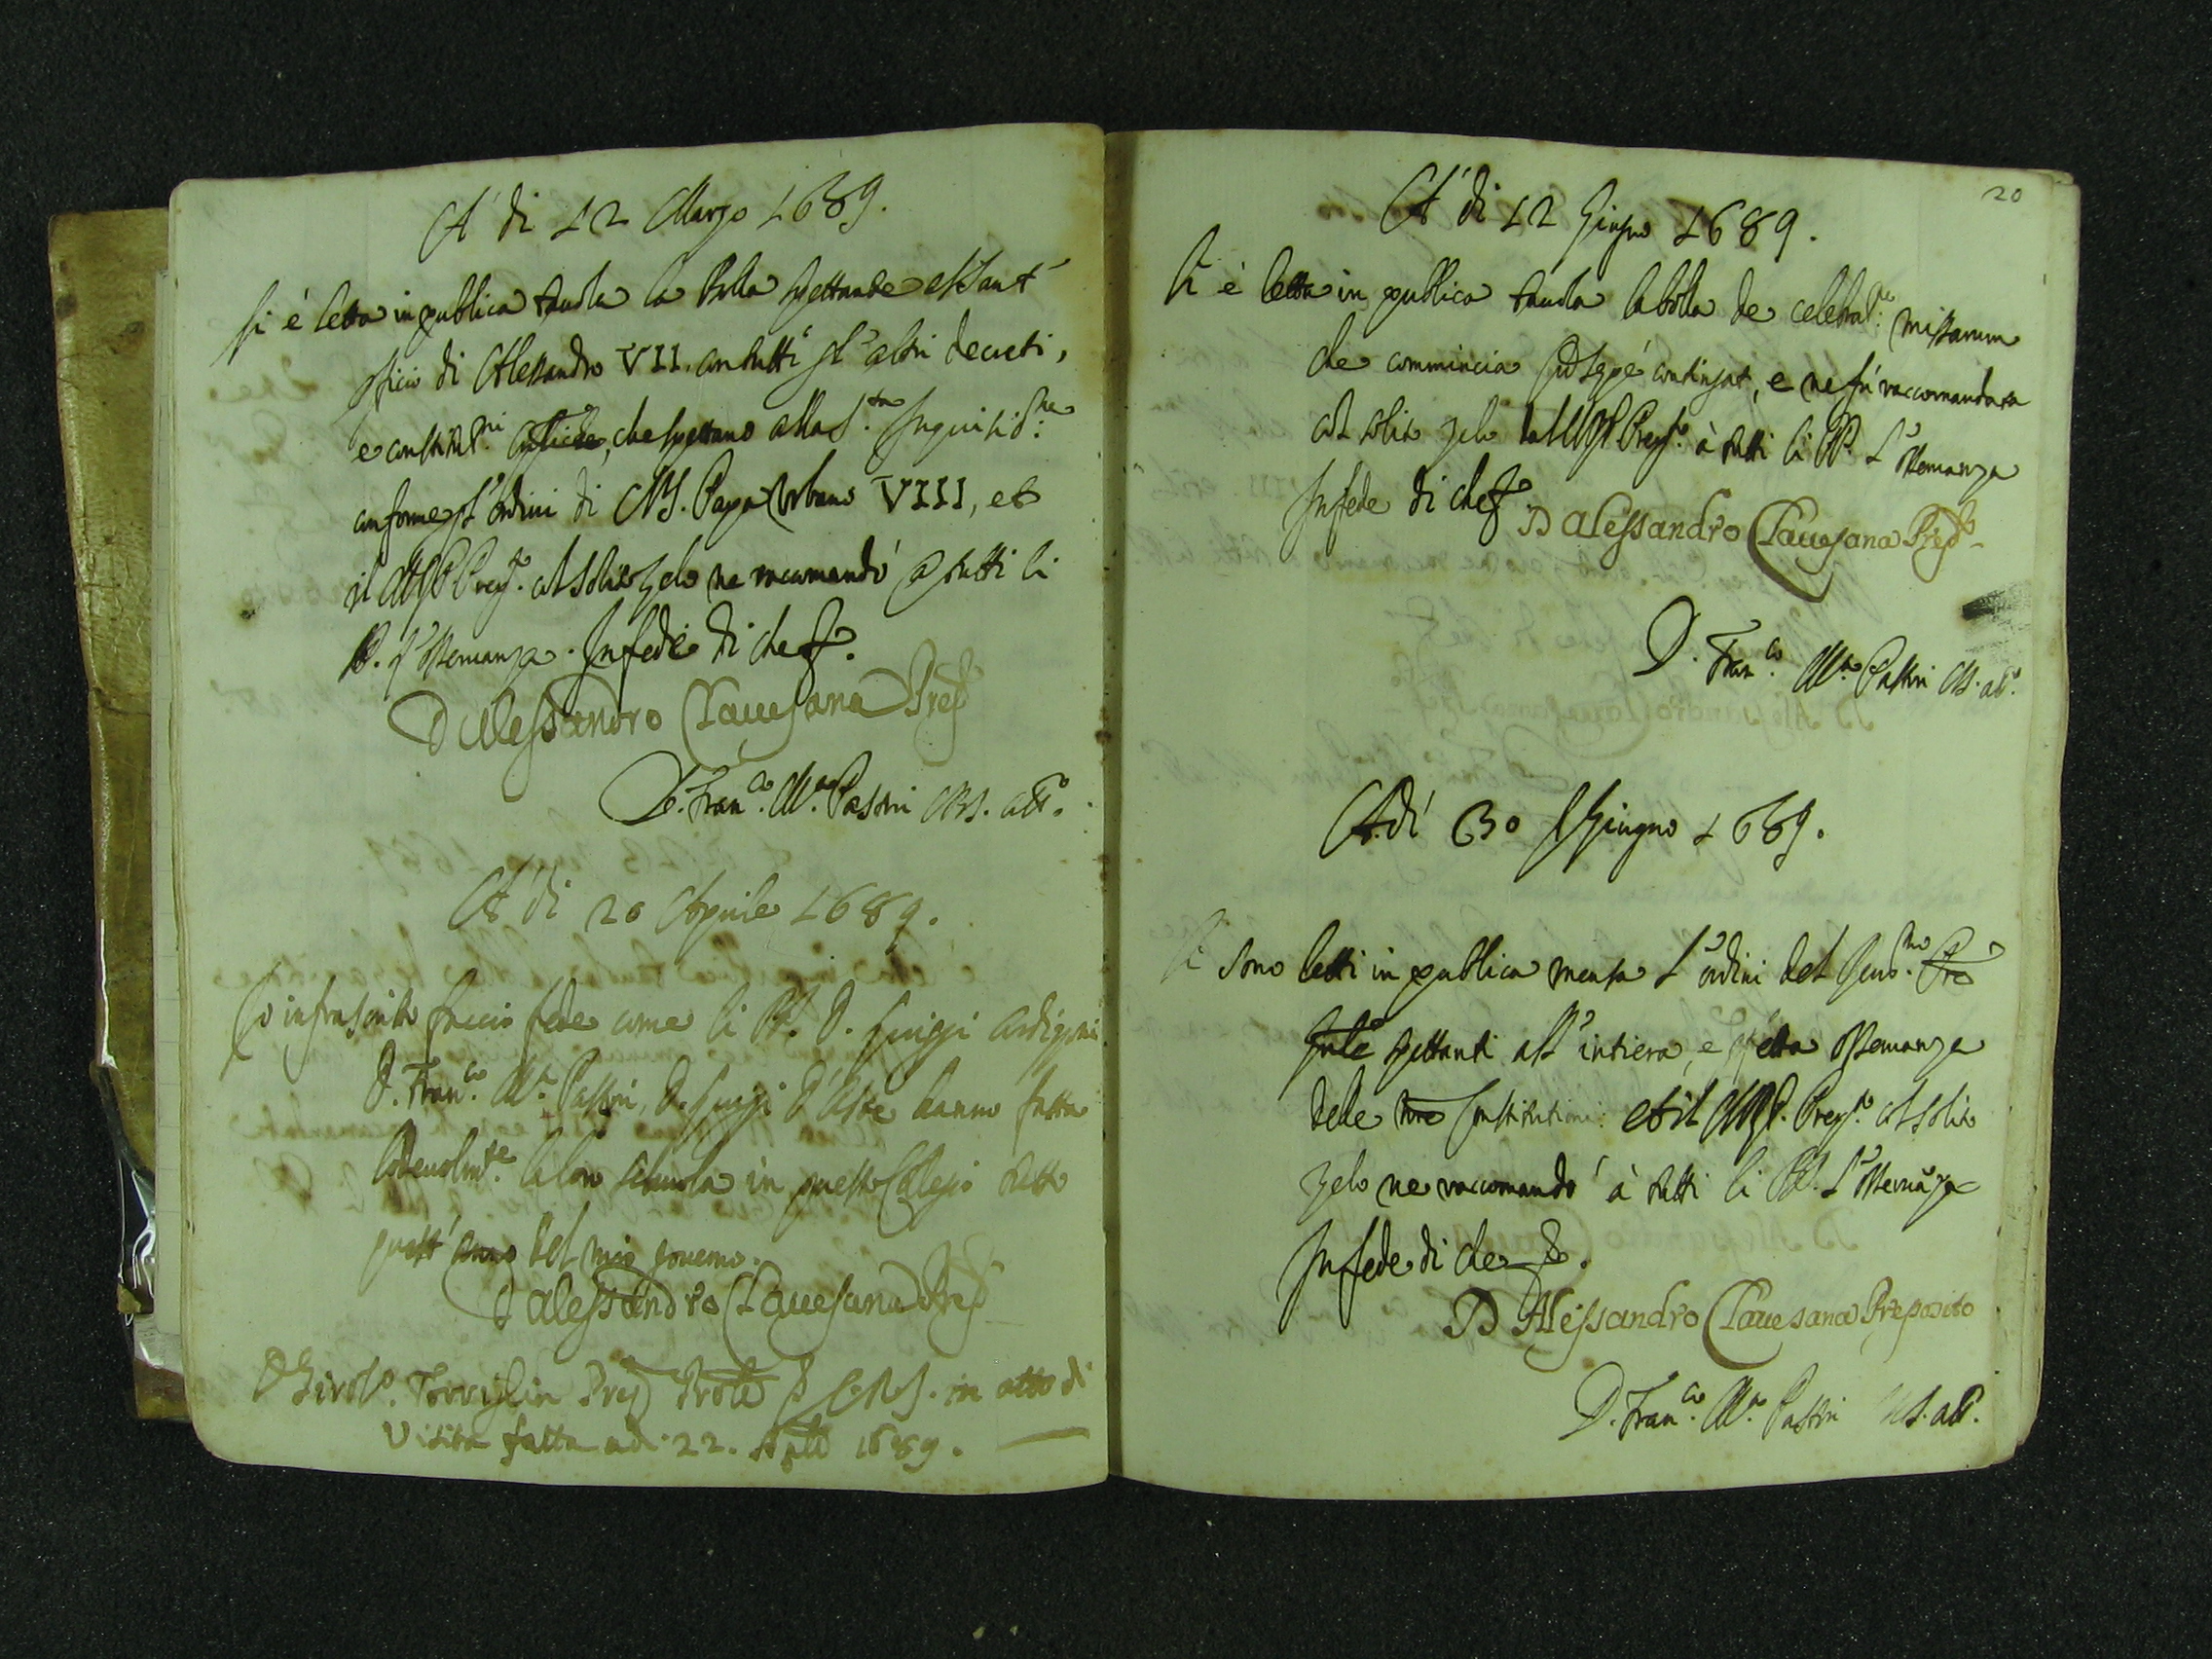 A' di 12 Marzo 1689.
Si è letta in publica tauola la Bolla spettante al Sant'
officio di Alessandro VII. con tutti gl'altri decreti,
e constitut.ni che spettano alla S.ta Inquisit.ne
conforme gl'ordini di N.S. Papa Urbano VIII, et
il M.R.P. Prep.to col solito zelo ne racomandò a tutti li
PP. l'osseruanza. In fede di che &.
D Alessandro Clauesana Prep.to
D. Fran.co M.a Pastori CRS. att.o
A' di 20 Aprile 1689.
Io infrascritto faccio fede come li PP. D. Luigi
D. Fran.co M.a Pastori, D. Luigi D'Aste hanno fatta
lodeuolm.te la loro schuola in questo Collegio tutto
quest'anno del mio gouerno.
D Alessandro Clauesana Prep.to
D Girol.o Prep.to Prole d C.R.S. in atto di
Visita fatta adi 22. Aple 1689.
20
A' di 12 Giugno 1689.
Si è letta in publica tauola la bolla de celebrat.e missarum
che commincia Cum sepé contingat, e ne fú raccomandata
col solito zelo dal M.R.P. Prep.to à tutti li PP. l'osseruanza
In fede di che &.
D Alessandro Clauesana Prep.to
D. Fran.co M.a Pastori CRS. att.o
A di 30 Giugno 1689.
Si sono letti in publica mensa l'ordini del Reud.mo Pre
Gnle spettanti all'intiera, e esatta osseruanza
delle nre Constitutioni: et il M.R.P. Prep.to col solito
zelo ne raccomandò à tutti li PP. l'osseruãza
In fede di che &.
D Alessandro Clauesana Preposito
D. Fran.co M.a Pastori CRS. att.o